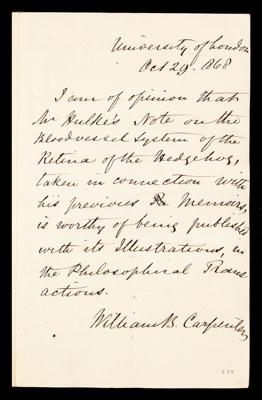 University of London
Oct 29. 1868
I am of opinion that
Mr Hulke's Note on the
Bloodvessel System of the
Retina of the Hedgehog,
taken in connection with
his previous Memoirs,
is worthy of being published
with its Illustrations, in
the Philosophical Trans
actions.
William B. Carpenter